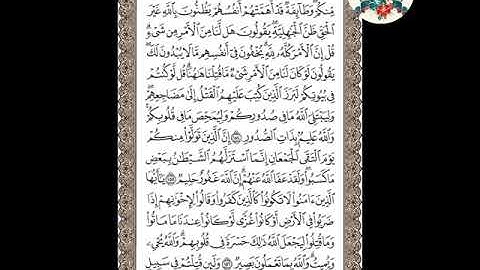 مِّنكُمْ وَطَآئِفَةٌ قَدْ أَهَمَّتْهُمْ أَنفُسُهُمْ يَظُنُّونَ بِٱللَّهِ غَيْرَ
ٱلْحَقِّ ظَنَّ ٱلْجَٰهِلِيَّةِ يَقُولُونَ هَل لَّنَا مِنَ ٱلْأَمْرِ مِن شَىْءٍ
قُلْ إِنَّ ٱلْأَمْرَ كُلَّهُۥ لِلَّهِ يُخْفُونَ فِىٓ أَنفُسِهِم مَّا لَا يُبْدُونَ لَكَ
يَقُولُونَ لَوْ كَانَ لَنَا مِنَ ٱلْأَمْرِ شَىْءٌ مَّا قُتِلْنَا هَٰهُنَا قُل لَّوْ كُنتُمْ
فِى بُيُوتِكُمْ لَبَرَزَ ٱلَّذِينَ كُتِبَ عَلَيْهِمُ ٱلْقَتْلُ إِلَىٰ مَضَاجِعِهِمْ
وَلِيَبْتَلِىَ ٱللَّهُ مَا فِى صُدُورِكُمْ وَلِيُمَحِّصَ مَا فِى قُلُوبِكُمْ
وَٱللَّهُ عَلِيمٌۢ بِذَاتِ ٱلصُّدُورِ ۝١٥٤ إِنَّ ٱلَّذِينَ تَوَلَّوْا۟ مِنكُمْ
يَوْمَ ٱلْتَقَى ٱلْجَمْعَانِ إِنَّمَا ٱسْتَزَلَّهُمُ ٱلشَّيْطَٰنُ بِبَعْضِ
مَا كَسَبُوا۟ وَلَقَدْ عَفَا ٱللَّهُ عَنْهُمْ إِنَّ ٱللَّهَ غَفُورٌ حَلِيمٌ ۝١٥٥ يَٰٓأَيُّهَا
ٱلَّذِينَ ءَامَنُوا۟ لَا تَكُونُوا۟ كَٱلَّذِينَ كَفَرُوا۟ وَقَالُوا۟ لِإِخْوَٰنِهِمْ إِذَا
ضَرَبُوا۟ فِى ٱلْأَرْضِ أَوْ كَانُوا۟ غُزًّى لَّوْ كَانُوا۟ عِندَنَا مَا مَاتُوا۟
وَمَا قُتِلُوا۟ لِيَجْعَلَ ٱللَّهُ ذَٰلِكَ حَسْرَةً فِى قُلُوبِهِمْ وَٱللَّهُ يُحْىِۦ
وَيُمِيتُ وَٱللَّهُ بِمَا تَعْمَلُونَ بَصِيرٌ ۝١٥٦ وَلَئِن قُتِلْتُمْ فِى سَبِيلِ